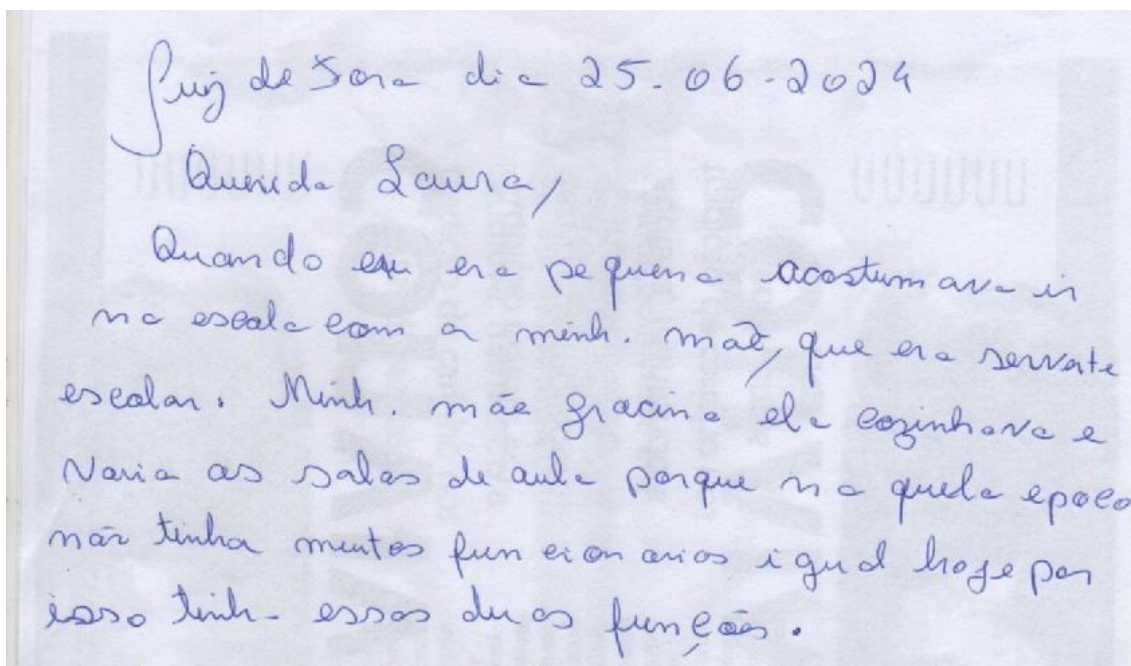 Juiz de Fora dia 25-06-2024
Querida Laura,
Quando eu era pequena acostumava ir
na escola com a minha mãe, que era servate
escolar. Minha mãe gracina ela cozinhava e
varia as salas de aula porque na quela epoca
não tinha muitos funcionarios igual hoje por
isso tinha essas duas funções.